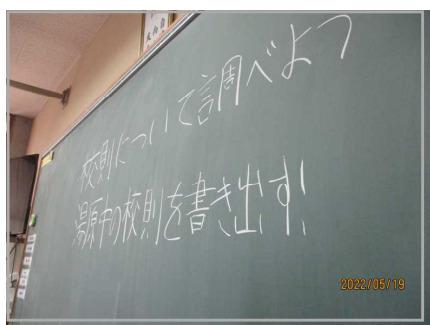 校則について調べよう
湯原中の校則を書き出す!
2022/05/19